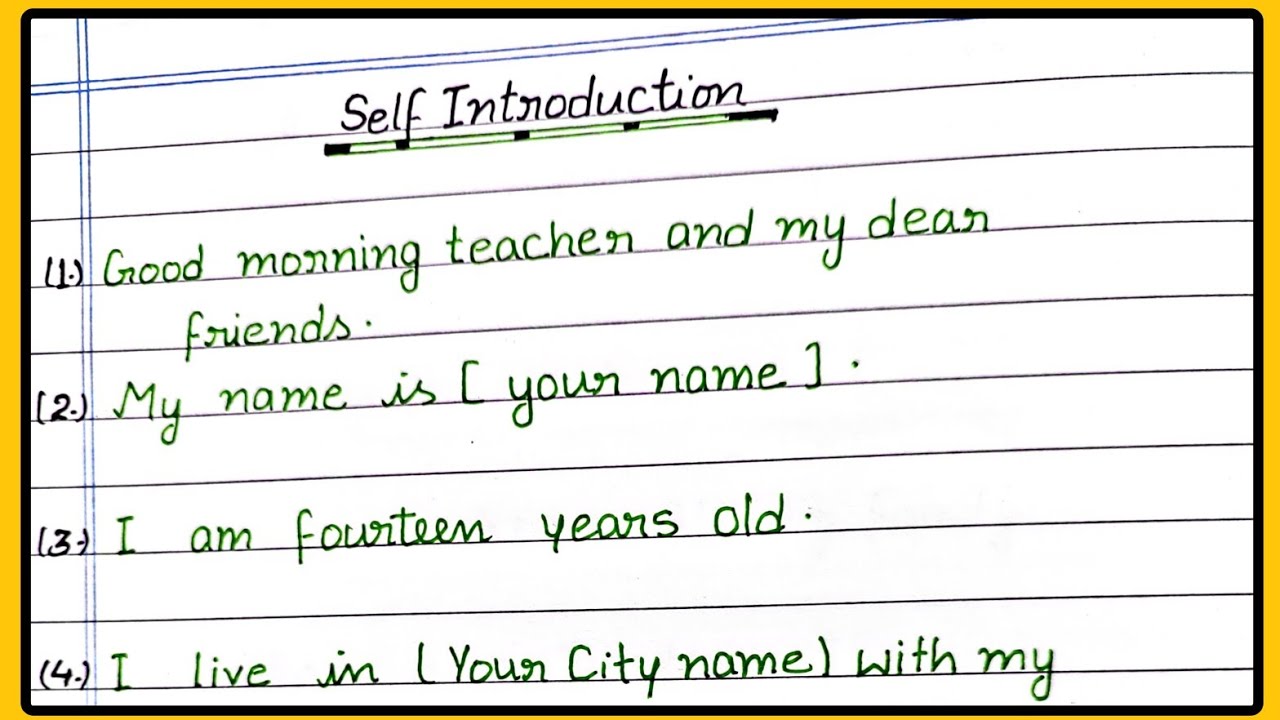 Self Introduction
(1.) Good morning teacher and my dear
friends.
(2.) My name is [ your name ] .
(3.) I am fourteen years old.
(4.) I live in (Your City name) with my